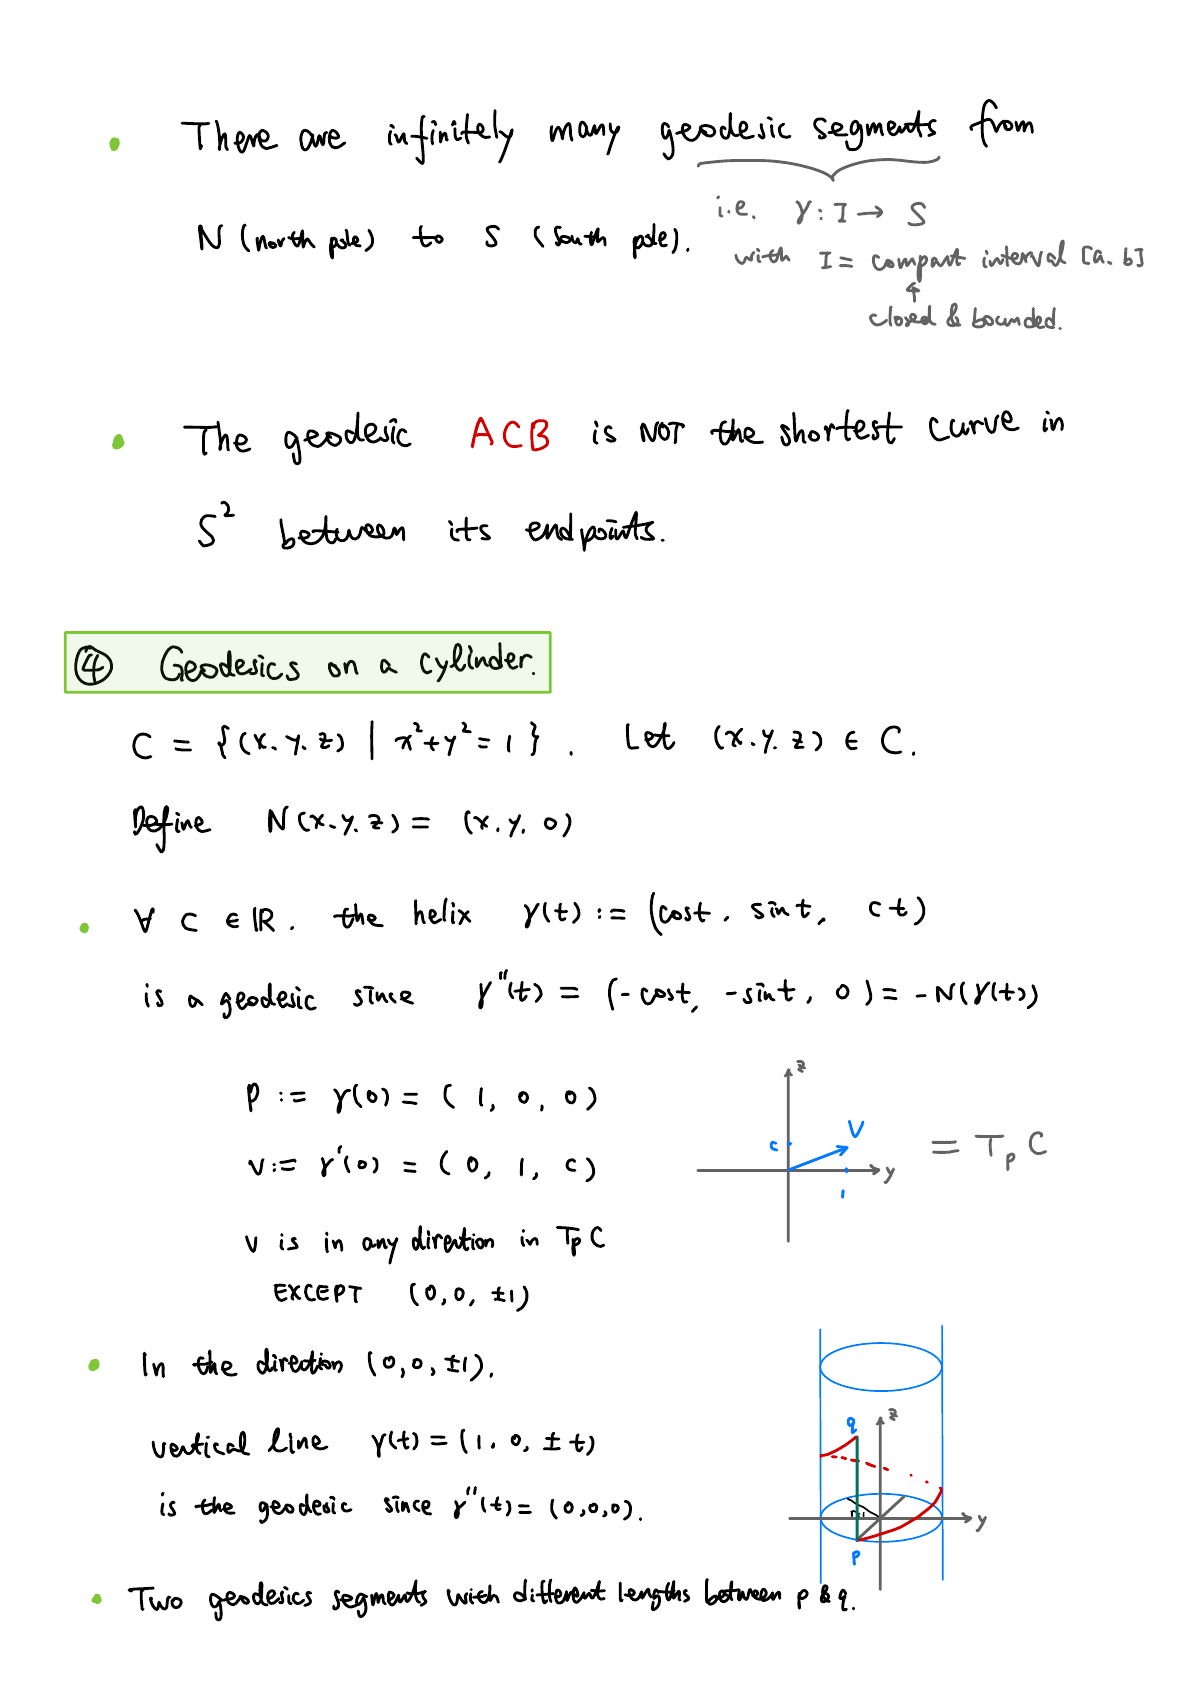 • There are infinitely many geodesic segments from
i.e. γ : I → S
N (north pole) to S (south pole).
with I = compact interval [a. b]
closed & bounded.
• The geodesic ACB is NOT the shortest curve in
S² between its endpoints.
④ Geodesics on a cylinder.
C = {(x. y. z) | x²+y²=1}. Let (x. y. z) ∈ C.
Define N(x. y. z) = (x. y. 0)
• ∀ c ∈ ℝ. the helix γ(t) := (cost, sint, ct)
is a geodesic since γ''(t) = (-cost, -sint, 0) = -N(γ(t))
p := γ(0) = (1, 0, 0)
z
c V
= TpC
y
1
v := γ'(0) = (0, 1, c)
v is in any direction in TpC
EXCEPT (0, 0, ±1)
• In the direction (0, 0, ±1).
vertical line γ(t) = (1. 0, ± t)
is the geodesic since γ''(t) = (0, 0, 0).
q z
y
p
• Two geodesics segments with different lengths between p & q.